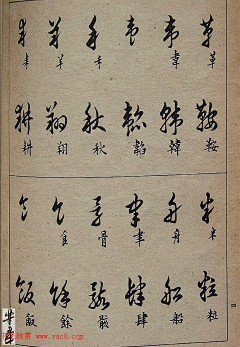 革 韋 韦 手 羊 耒
革 韋 丰 羊 丰
鞍 韓 韜 秋 翔 耕
鞍 韓 韜 秋 翔 耕
米 舟 聿 骨 食
米 舟 聿 骨 食
粒 船 肆 骸 餘 飯
粒 船 肆 骸 餘 飯
www.yac8.com